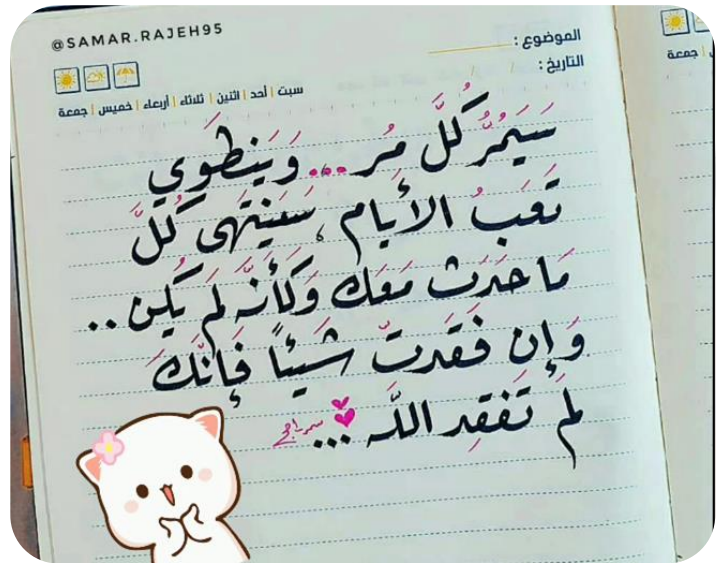 @SAMAR.RAJEH95
الموضوع :
التاريخ :
سبت | أحد | اثنين | ثلاثاء | أربعاء | خميس | جمعة
جمعة
سَيَمُرُّ كُلَّ مُر ... وَيَنطَوِي
تَعَبُ الأيَام ، سَينتَهى كُلَّ
مَا حَدَث مَعَك وَكَأنَّه لَم يَكُن ..
وَإِن فَقَدتّ شَيئاً فَإنَّكَ
لَم تَفقِد اللَّه ...
سمر راجح